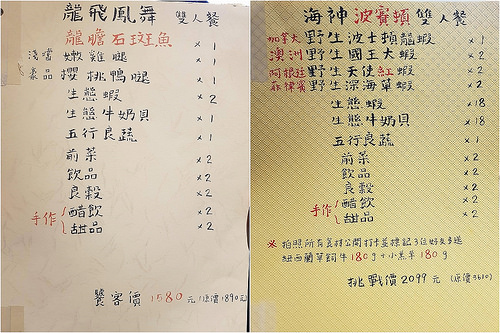 龍飛鳳舞 雙人餐
龍膽石斑魚 x 1
嫩雞腿 x 1
櫻桃鴨腿 x 1
生態蝦 x 2
生態牛奶貝 x 1
五行良蔬 x 1
前菜 x 2
飲品 x 2
良穀 x 2
手作 醋飲 x 2
甜品 x 2
饗客價 1580 元 (原價1890元)
海神波賽頓 雙人餐
加拿大 野生波士頓龍蝦 x 1
澳洲 野生國王大蝦 x 2
阿根廷 野生天使紅蝦 x 2
菲律賓 野生深海草蝦 x 2
生態蝦 x 18
生態牛奶貝 x 18
五行良蔬 x 1
前菜 x 2
飲品 x 2
良穀 x 2
手作 醋飲 x 2
甜品 x 2
※ 拍照所有食材公開打卡並標記3位好友多送
紐西蘭草飼牛180g+小羔羊180g
挑戰價2099元 (原價3610)